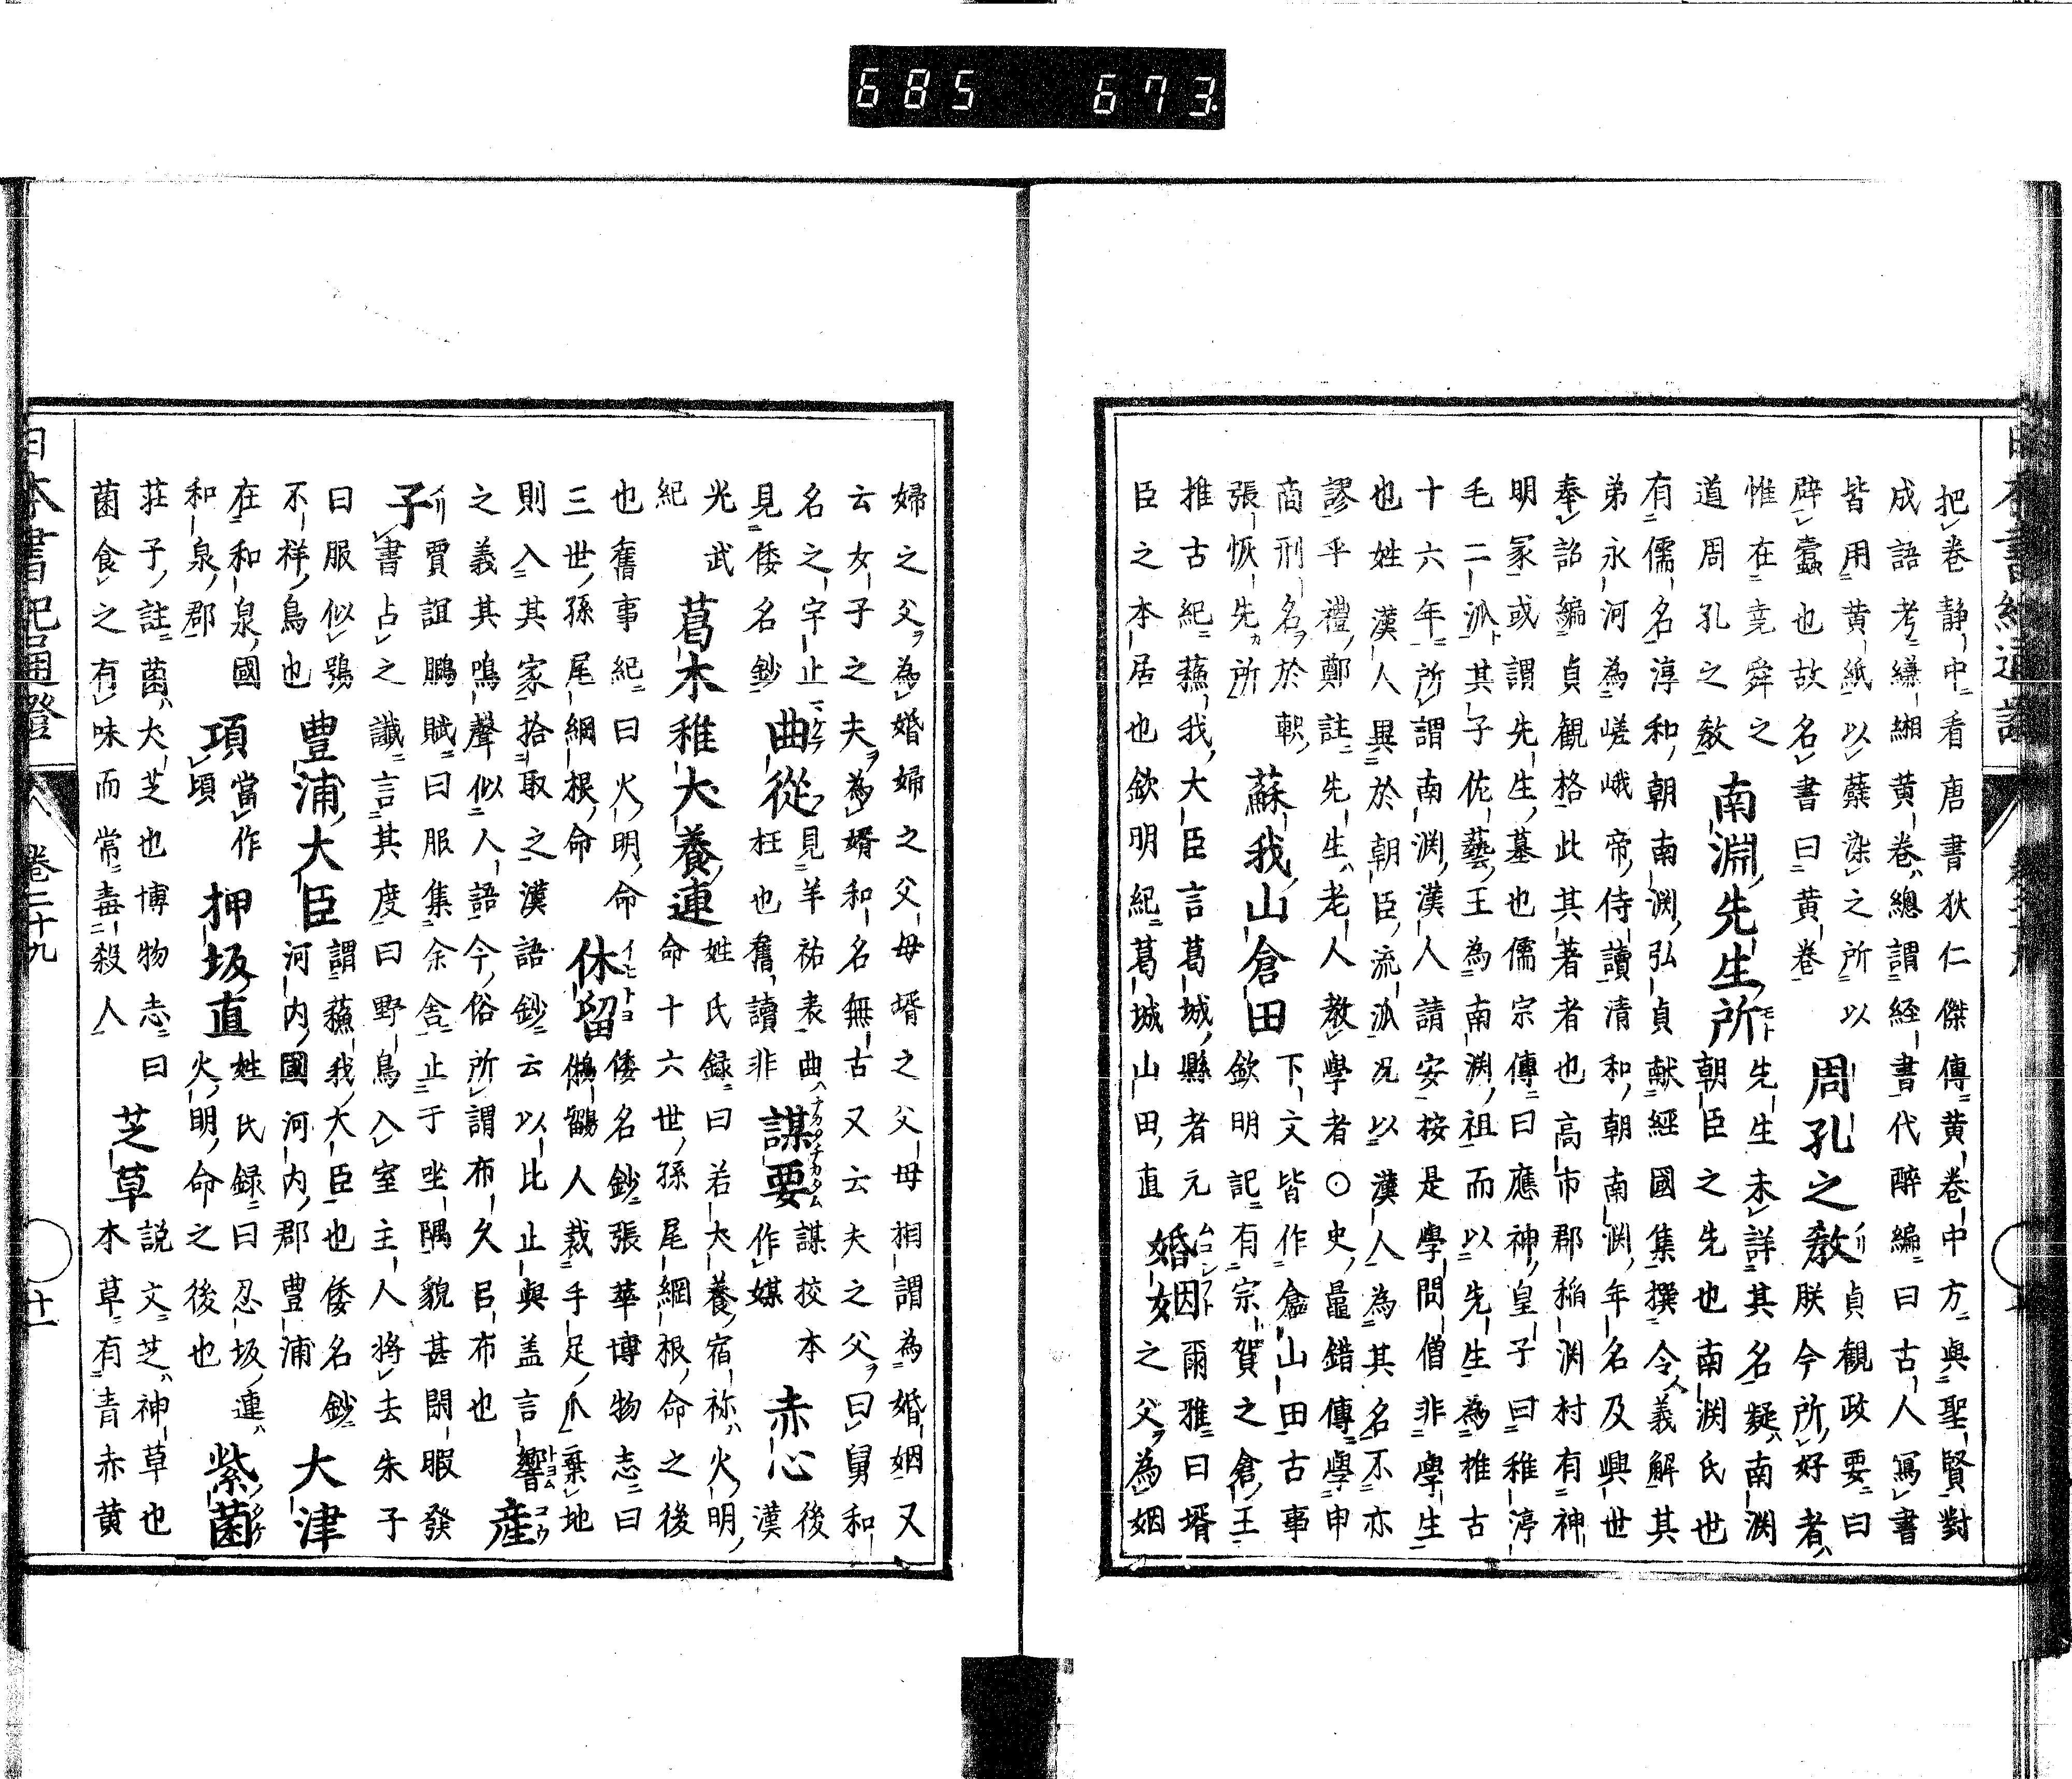 把卷靜中看唐書狄仁傑傳黄卷中方與聖賢對
成語考縹緗黄卷總謂経書代醉編曰古人寫書
皆用黄紙以蘗染之所以
辟蠧也故名書曰黄卷
周孔之敎
貞観政要曰
朕今所好者
惟在尭舜之
道周孔之敎
南淵先生所
先生未詳其名疑南渕
朝臣之先也南渕氏也
有儒名淳和朝南渕弘貞献經國集撰令義解其
弟永河為嵯峨帝侍讀清和朝南渕年名及興世
奉詔編貞観格此其著者也高市郡稲渕村有神
明冢或謂先生墓也儒宗傳曰應神皇子曰稚渟
毛二派其子佐藝王為南渕祖而以先生為推古
十六年所謂南渕漢人請安按是學問僧非學生
也姓漢人異於朝臣流派况以漢人為其名不亦
謬乎禮鄭註先生老人教學者○史鼂錯傳學申
商刑名於軹
張恢先所
蘇我山倉田
下文皆作倉山田古事
欽明記有宗賀之倉王
推古紀蘓我大臣言葛城縣者元
臣之本居也欽明紀葛城山田直
婚姻
爾雅曰壻
之父為姻
婦之父為婚婦之父母壻之父母相謂為婚姻又
云女子之夫為婿和名無古又云夫之父曰舅和
名之宇止
見倭名鈔
曲從
見羊祐表曲
枉也舊讀非
謀要
謀挍本
作媒
赤心
後
漢
光武
紀
葛木稚犬養連
姓氏録曰若犬養宿祢火明
命十六世孫尾綱根命之後
也舊事紀曰火明命
三世孫尾綱根命
休留
倭名鈔張華博物志曰
鵂鶹人裁手足爪棄地
則入其家拾取之漢語鈔云以比止與盖言響
之義其鳴聲似人語今俗所謂布久呂布也
産
子
賈誼鵩賦曰服集余舎止于坐隅貌甚閑暇發
書占之讖言其度曰野鳥入室主人將去朱子
曰服似鴞
不祥鳥也
豊浦大臣
謂蘓我大臣也倭名鈔
河内國河内郡豊浦
大津
在和泉國
和泉郡
項
當作
頃
押坂直
姓氏録曰忍坂連
火明命之後也
紫菌
莊子註菌大芝也博物志曰
菌食之有味而常毒殺人
芝草
説文芝神草也
本草有青赤黄
日本書紀通證
卷二十九
十一
685 673